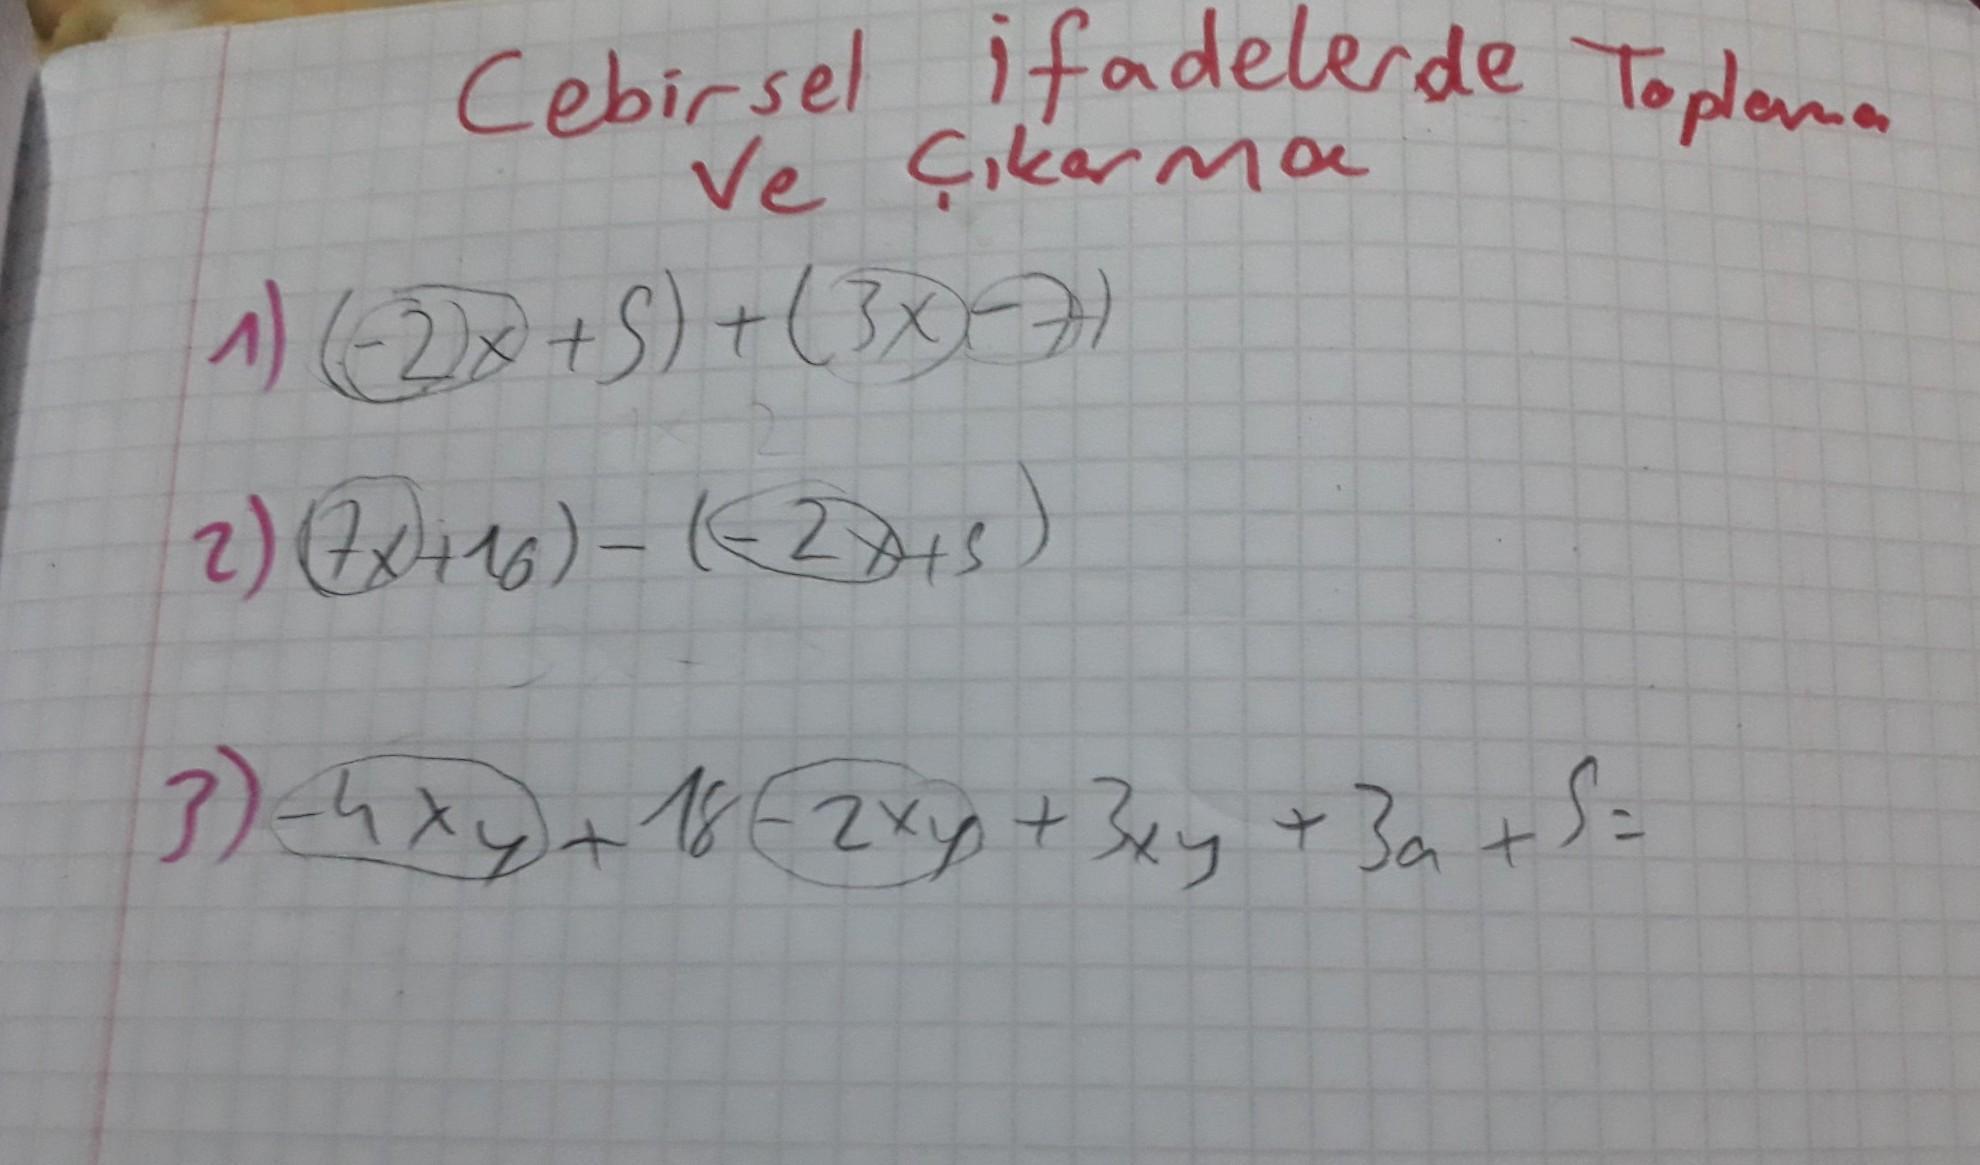 Cebirsel ifadelerde Toplama
Ve Çıkarma
1) (-2x+5) + (3x-7)
2) (7x+16) - (-2x+5)
3) -4xy + 18 -2xy + 3xy + 3a + 5 =